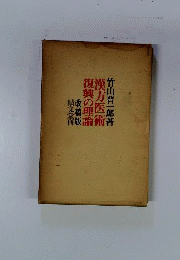 竹山晋一郎著
漢方医術
復興の理論
改稿版
績文堂